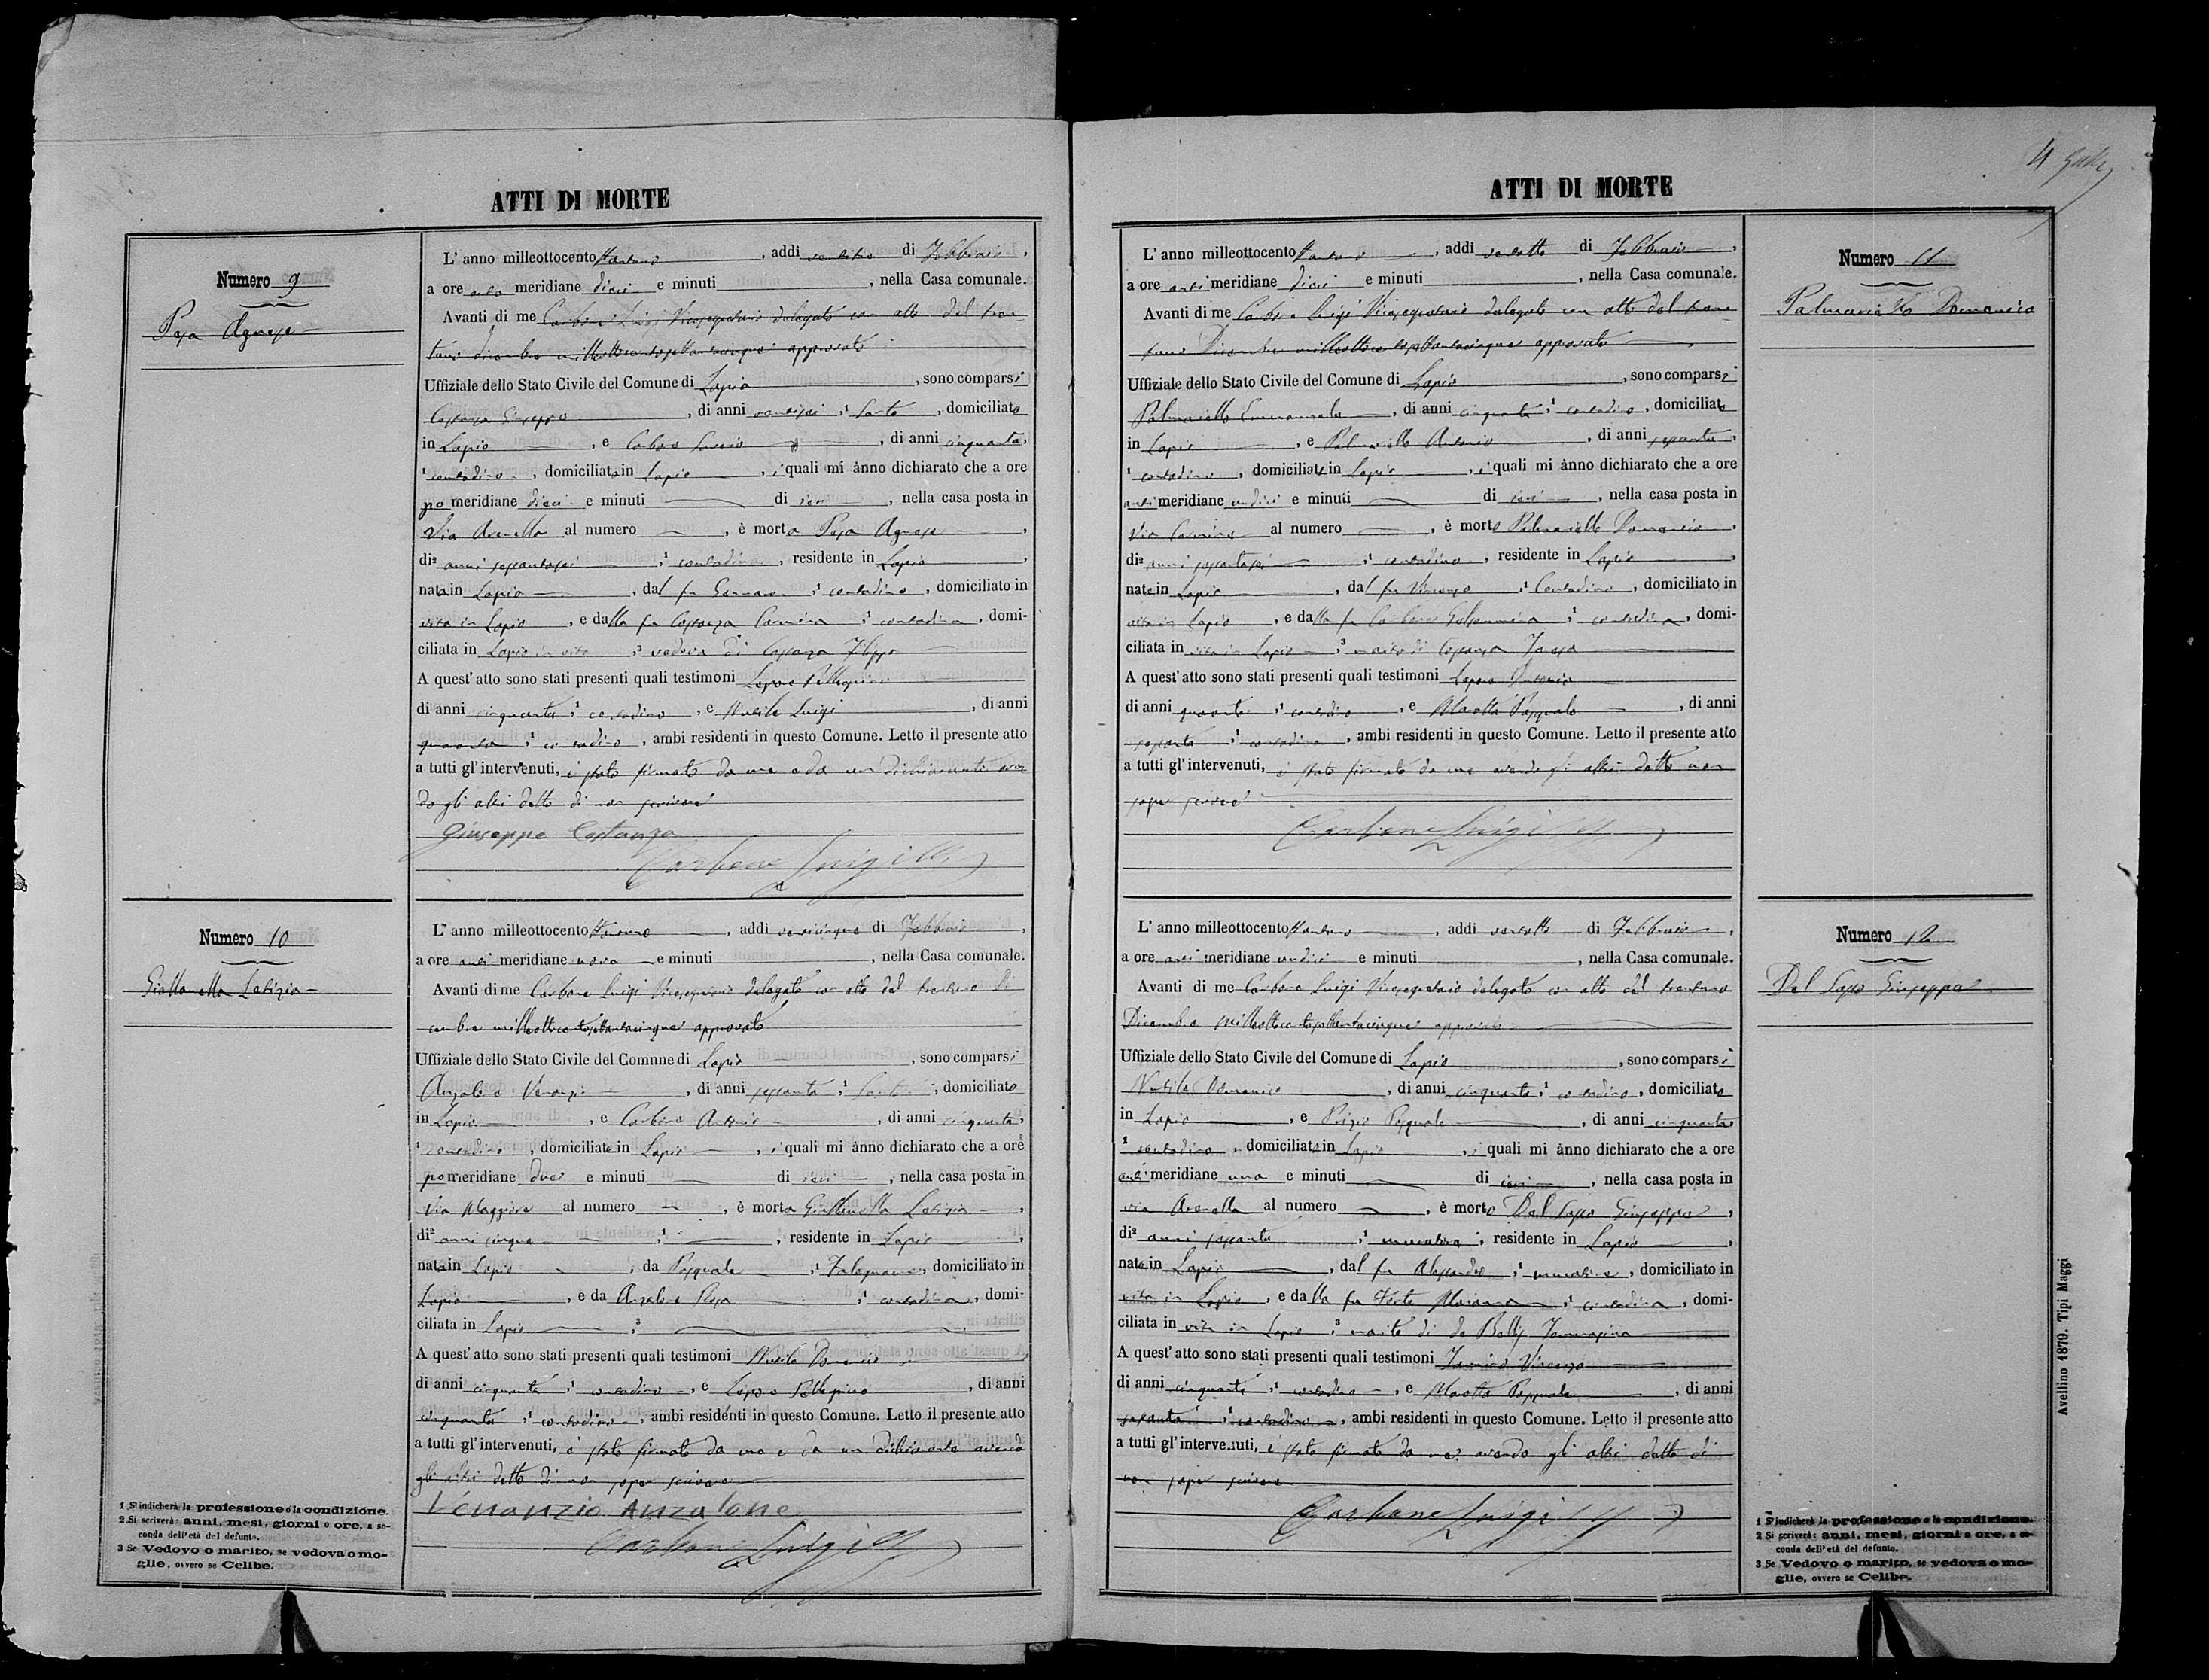 ATTI DI MORTE
Numero 9
Pesa Agnese
L'anno milleottocentottantuno, addì ventitre di Febbraio,
a ore anti meridiane dieci e minuti , nella Casa comunale.
Avanti di me Carbone Luigi Vicesegretario delegato con atto del tren
tuno dicembre milleottocentosettantacinque approvato
Uffiziale dello Stato Civile del Comune di Lapio, sono comparsi
Costanza Giuseppe, di anni ventisei, 1 Sarto, domiciliato
in Lapio, e Carbone, di anni cinquanta,
1 contadino, domiciliato in Lapio, i quali mi ànno dichiarato che a ore
po meridiane dieci e minuti di ieri, nella casa posta in
Via Arenella al numero , è morta Pesa Agnese,
di 2 anni sessantasei, 1 contadina, residente in Lapio,
nata in Lapio, dal fu Gennaro, 1 contadino, domiciliato in
vita in Lapio, e dalla fu Costanza Carmina, 1 contadina, domi-
ciliata in Lapio in vita, 3 vedova di Costanza Filippo
A quest'atto sono stati presenti quali testimoni Lepore Pellegrino
di anni cinquanta, 1 contadino, e Musile Luigi, di anni
quaranta, 1 contadino, ambi residenti in questo Comune. Letto il presente atto
a tutti gl'intervenuti, è stato firmato da me e da un dichiarante aven
do gli altri detto di non scrivere
Giuseppe Costanza
Carbone Luigi
Numero 10
Letizia
L'anno milleottocentottantuno, addì venticinque di Febbraio,
a ore anti meridiane nove e minuti , nella Casa comunale.
Avanti di me Carbone Luigi Vicesegretario delegato con atto del trentuno Di
cembre milleottocentosettantacinque approvato
Uffiziale dello Stato Civile del Comnne di Lapio, sono comparsi
Anzalone Venanzio, di anni sessanta, 1 Sarto, domiciliato
in Lapio, e Carbone Antonio, di anni cinquanta,
1 contadino, domiciliato in Lapio, i quali mi ànno dichiarato che a ore
pomeridiane due e minuti di ieri, nella casa posta in
via Maggiore al numero , è morta Letizia,
di 2 anni cinque, 1 , residente in Lapio,
nata in Lapio, da Pasquale, 1 Falegname, domiciliato in
Lapio, e da Anzalone Rosa, 1 contadina, domi-
ciliata in Lapio, 3
A quest'atto sono stati presenti quali testimoni Musile Domenico
di anni cinquanta, 1 contadino, e Lepore Pellegrino, di anni
cinquanta, 1 contadino, ambi residenti in questo Comune. Letto il presente atto
a tutti gl'intervenuti, è stato firmato da me e da un dichiarante avendo
gli altri detto di non saper scrivere
Venanzio Anzalone
Carbone Luigi
1 Si indicherà la professione o la condizione.
2 Si scriverà: anni, mesi, giorni o ore, a se-
conda dell'età del defunto.
3 Se Vedovo o marito, se vedova o mo-
glie, ovvero se Celibe.
4
ATTI DI MORTE
Numero 11
Palmariello Domenico
L'anno milleottocentottantuno, addì ventotto di Febbraio,
a ore anti meridiane dieci e minuti , nella Casa comunale.
Avanti di me Carbone Luigi Vicesegretario delegato con atto del tren
tuno Dicembre milleottocentosettantacinque approvato
Uffiziale dello Stato Civile del Comune di Lapio, sono comparsi
Palmariello Emmanuele, di anni cinquanta, 1 contadino, domiciliato
in Lapio, e Palmariello Antonio, di anni sessanta,
1 contadino, domiciliato in Lapio, i quali mi ànno dichiarato che a ore
antimeridiane undici e minuti di ieri, nella casa posta in
Via al numero , è morto Palmariello Domenico,
di 2 anni sessantasei, 1 contadino, residente in Lapio,
nato in Lapio, dal fu Vincenzo, 1 Contadino, domiciliato in
vita in Lapio, e dalla fu Carbone, 1 contadina, domi-
ciliata in vita in Lapio, 3 marito di Costanza
A quest'atto sono stati presenti quali testimoni Lepore Antonio
di anni quaranta, 1 contadino, e Maotta Pasquale, di anni
sessanta, 1 contadino, ambi residenti in questo Comune. Letto il presente atto
a tutti gl'intervenuti, è stato firmato da me avendo gli altri detto non
saper scrivere
Carbone Luigi
Numero 12
Del Sapo Giuseppe
L'anno milleottocentottantuno, addì ventotto di Febbraio,
a ore anti meridiane undici e minuti , nella Casa comunale.
Avanti di me Carbone Luigi Vicesegretario delegato con atto del trentuno
Dicembre milleottocentosettantacinque approvato
Uffiziale dello Stato Civile del Comune di Lapio, sono comparsi
Musile Domenico, di anni cinquanta, 1 contadino, domiciliato
in Lapio, e Pasquale, di anni cinquanta
1 contadino, domiciliato in Lapio, i quali mi ànno dichiarato che a ore
anti meridiane una e minuti di ieri, nella casa posta in
via Arenella al numero , è morto Del Sapo Giuseppe,
di 2 anni sessanta, 1 , residente in Lapio,
nato in Lapio, dal fu Alessandro, 1 , domiciliato in
vita in Lapio, e dalla fu Forte Marianna, 1 contadina, domi-
ciliata in vita in Lapio, 3 marito di
A quest'atto sono stati presenti quali testimoni Vincenzo
di anni cinquanta, 1 contadino, e Maotta Pasquale, di anni
sessanta, 1 contadino, ambi residenti in questo Comune. Letto il presente atto
a tutti gl'intervenuti, è stato firmato da me avendo gli altri detto di
non saper scrivere
Carbone Luigi
1 Si indicherà la professione o la condizione.
2 Si scriverà: anni, mesi, giorni o ore, a se-
conda dell'età del defunto.
3 Se Vedovo o marito, se vedova o mo-
glie, ovvero se Celibe.
Avellino 1879. Tipi Maggi